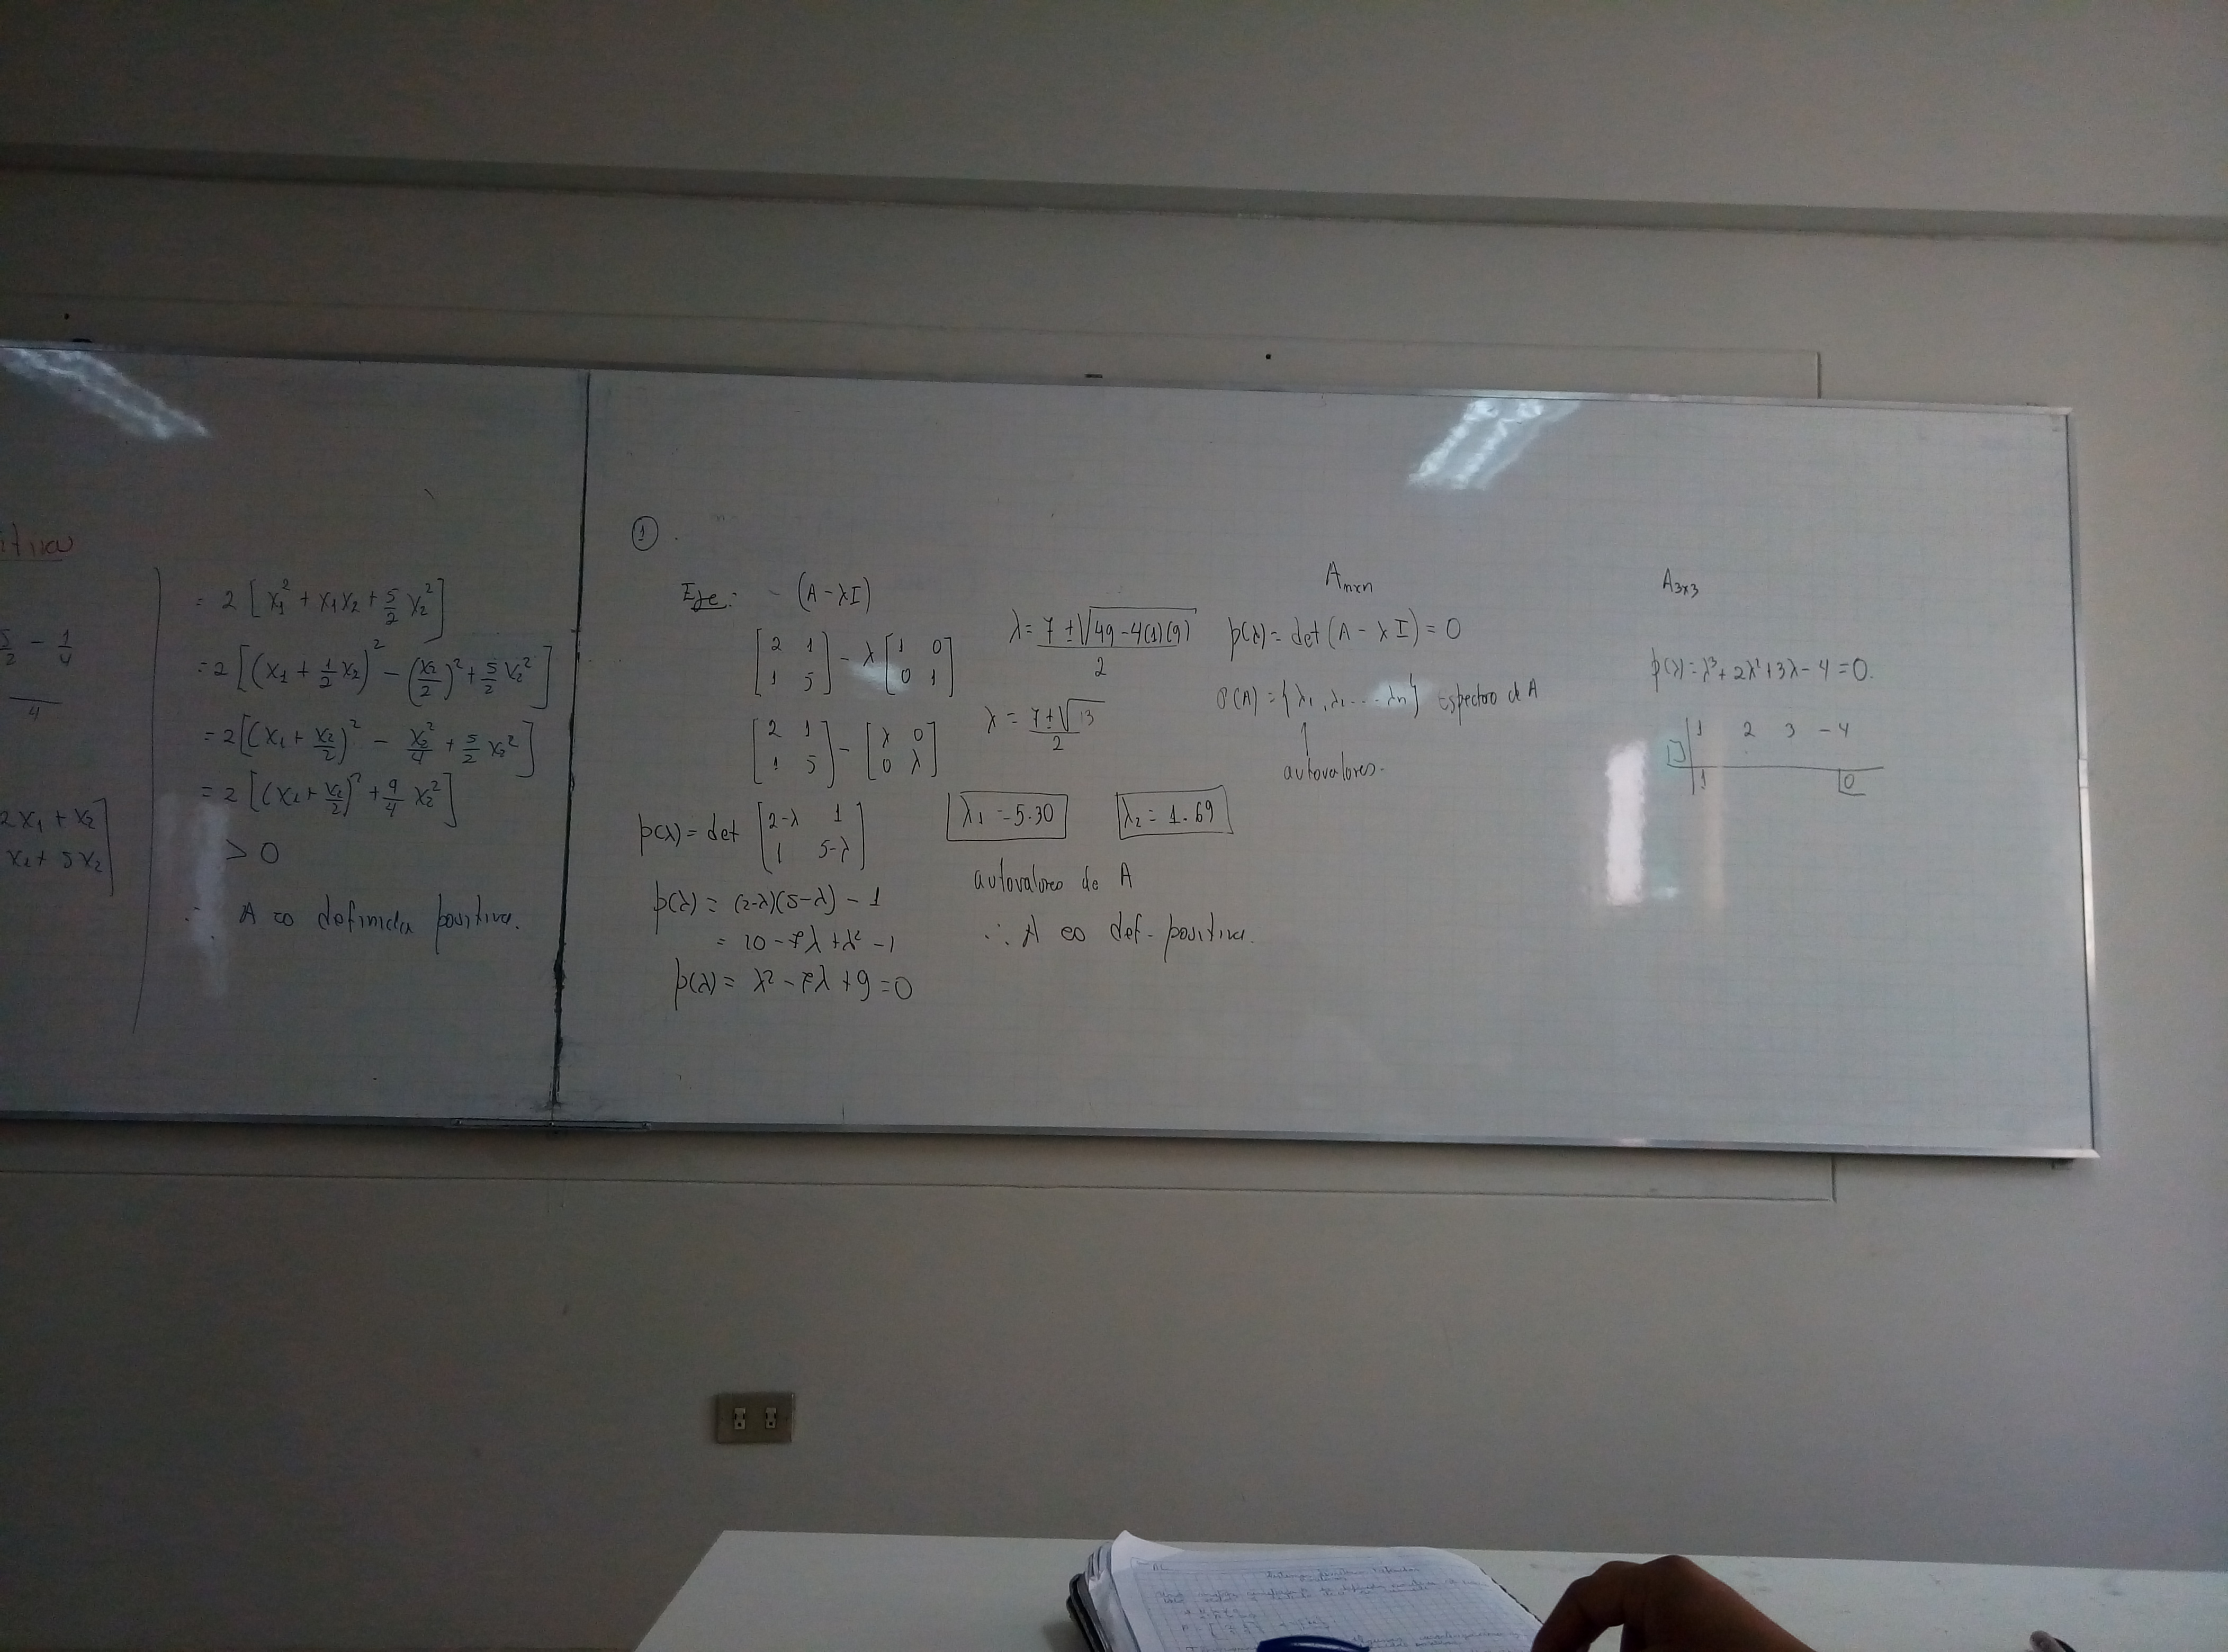 5/2 - 1/4
4
2x₁ + x₂
x₂ + 5x₂
= 2 [x₁² + x₁x₂ + 5/2 x₂²]
= 2 [(x₁ + 1/2 x₂)² - (x₂/2)² + 5/2 x₂²]
= 2 [(x₁ + x₂/2)² - x₂²/4 + 5/2 x₂²]
= 2 [(x₁ + x₂/2)² + 9/4 x₂²]
> 0
∴ A es definida positiva.
①
Eje: - (A - λI)
[2 1; 1 5] - λ [1 0; 0 1]
[2 1; 1 5] - [λ 0; 0 λ]
p(λ) = det [2-λ 1; 1 5-λ]
p(λ) = (2-λ)(5-λ) - 1
= 10 - 7λ + λ² - 1
p(λ) = λ² - 7λ + 9 = 0
λ = 7 ± √(49 - 4(1)(9)) / 2
λ = 7 ± √13 / 2
λ₁ = 5.30 λ₂ = 1.69
autovalores de A
∴ A es def. positiva.
Aₙₓₙ
p(λ) = det (A - λI) = 0
σ(A) = {λ₁, λ₂ ... λₙ} Espectro de A
↑
autovalores.
A₃ₓ₃
p(λ) = λ³ + 2λ² + 3λ - 4 = 0.
1 2 3 -4
1 0